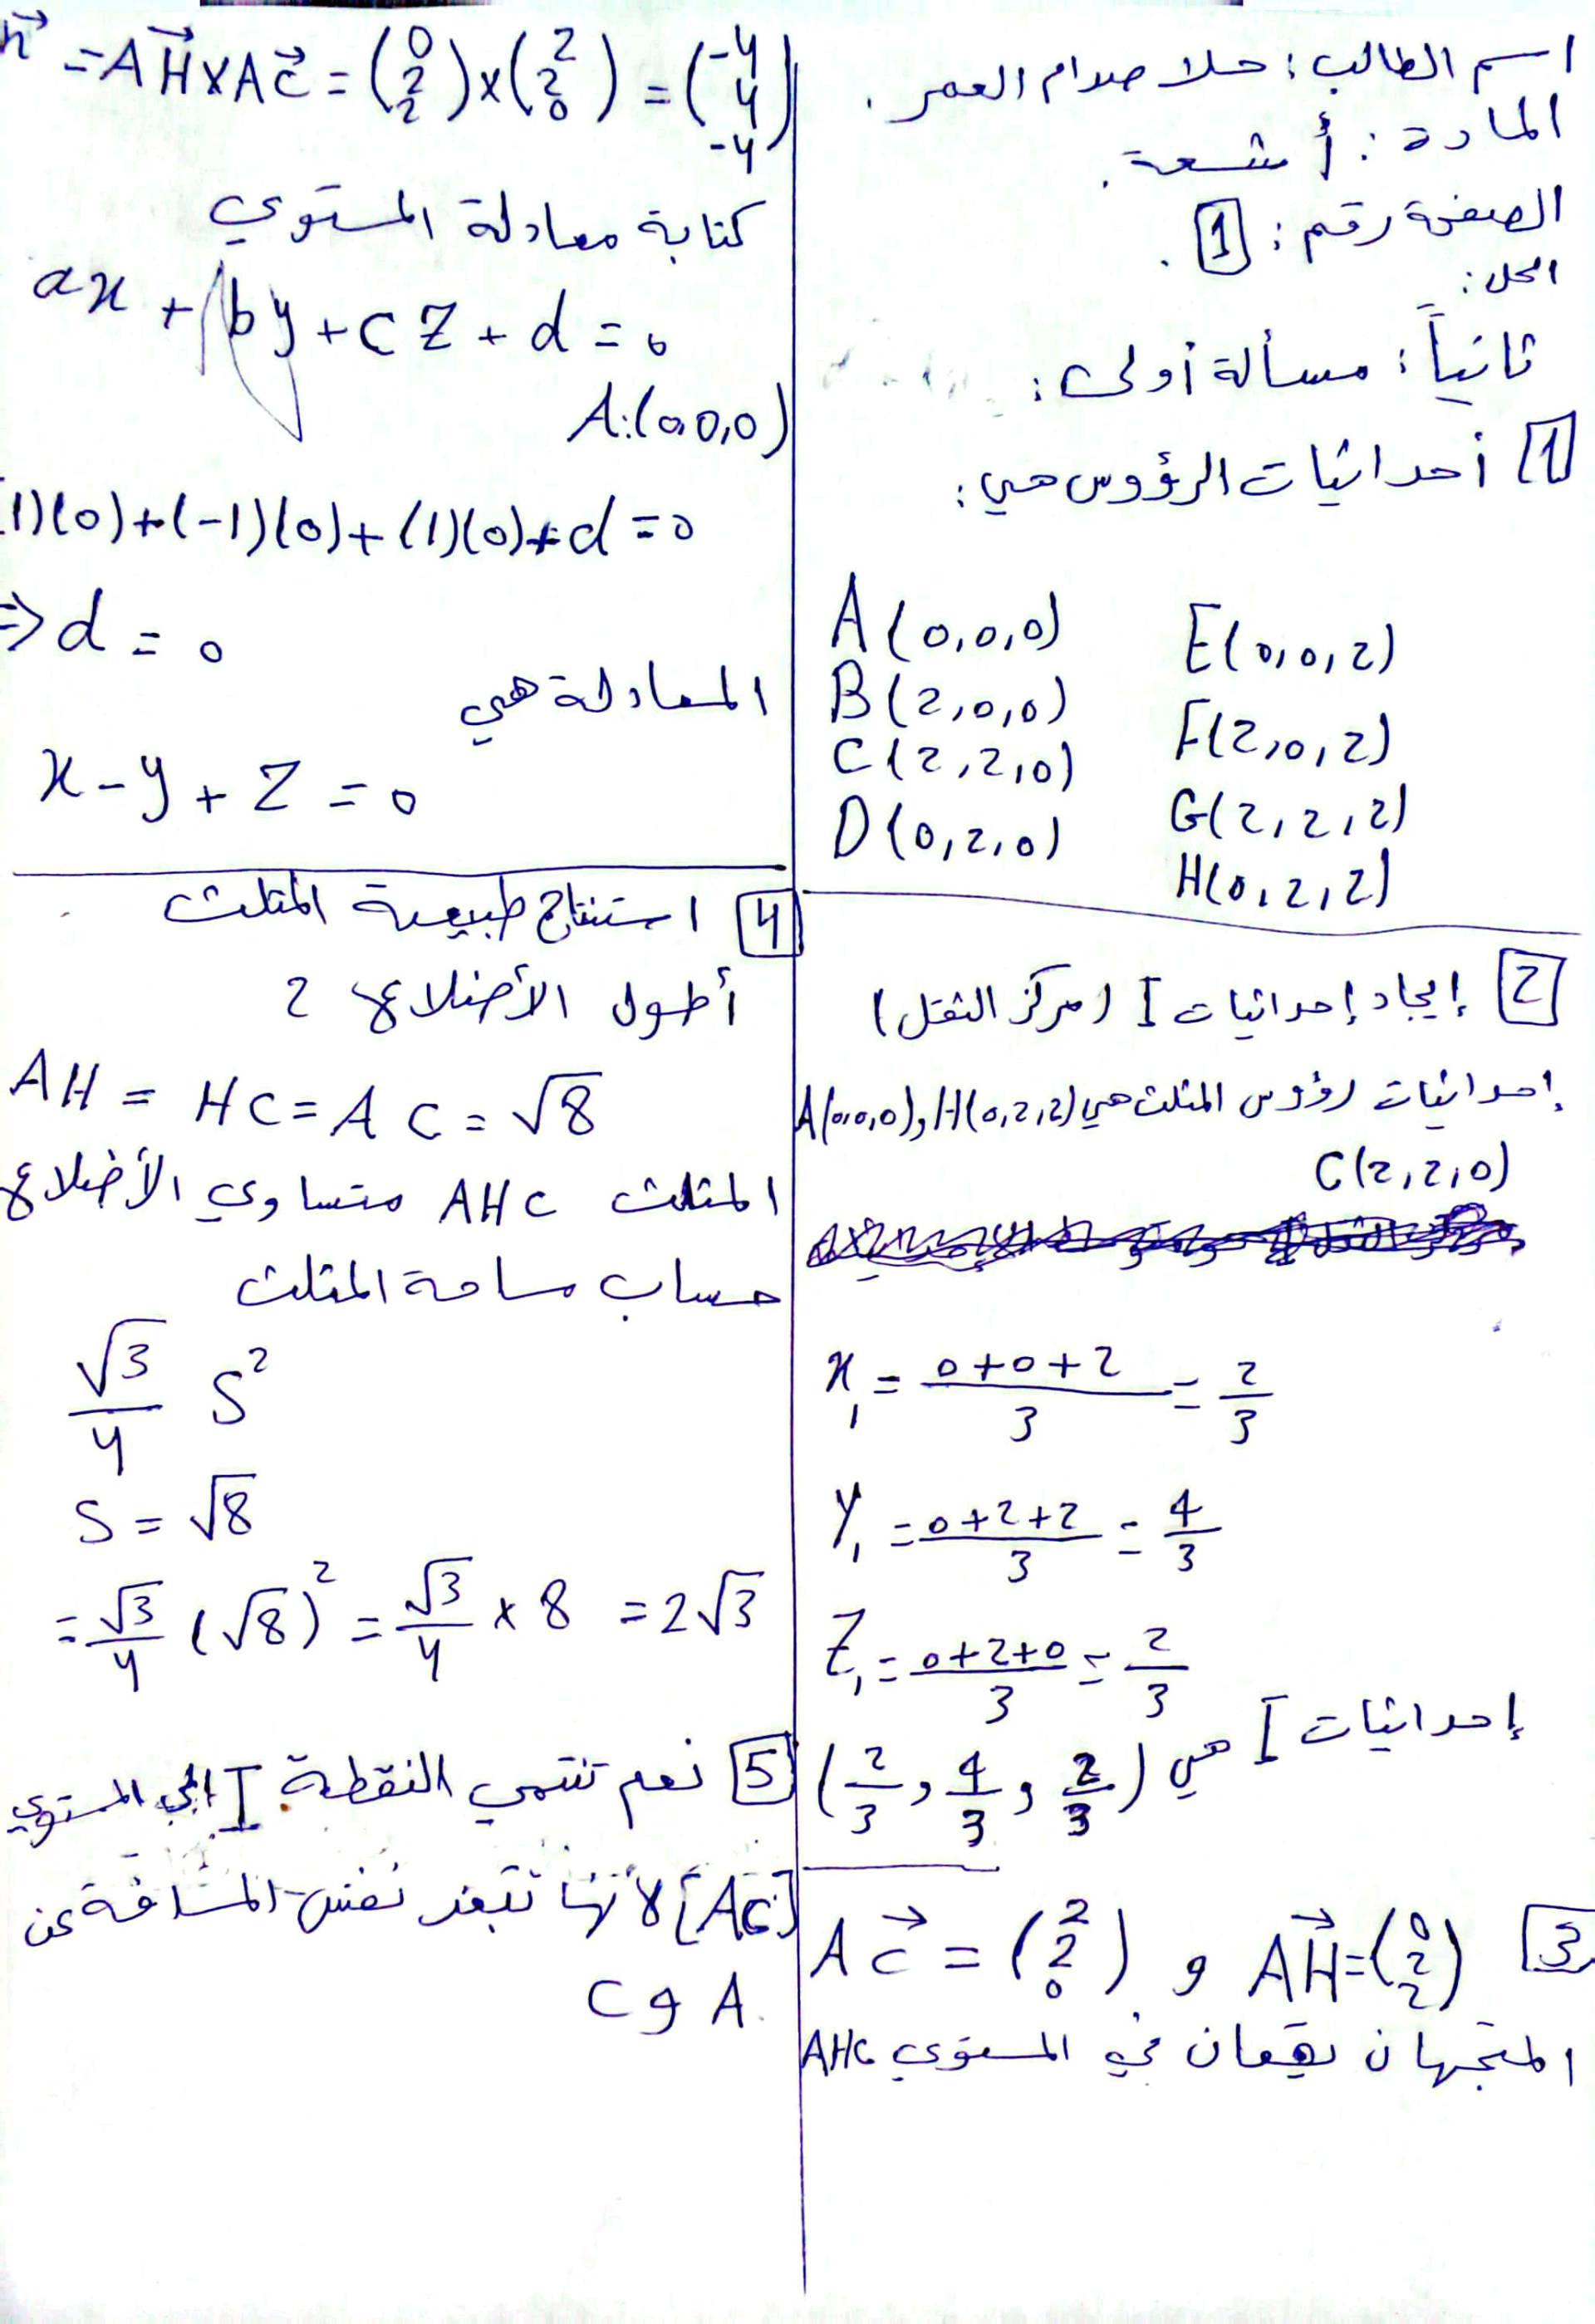 اسم الطالب: حلا صدام العمر.
المادة: أشعة.
الصفحة رقم: 1.
الحل:
ثانياً: مسألة أولى:
1 أحداثيات الرؤوس هي:
A(0,0,0) E(0,0,2)
B(2,0,0) F(2,0,2)
C(2,2,0) G(2,2,2)
D(0,2,0) H(0,2,2)
2 إيجاد إحداثيات I (مركز الثقل)
إحداثيات رؤوس المثلث هي A(0,0,0), H(0,2,2)
C(2,2,0)
x₁ = (0+0+2)/3 = 2/3
y₁ = (0+2+2)/3 = 4/3
z₁ = (0+2+0)/3 = 2/3
إحداثيات I هي (2/3, 4/3, 2/3)
3 AH = (0 2 2) و AC = (2 2 0)
المتجهان يقعان في المستوي AHC
n = AH × AC = (0 2 2) × (2 2 0) = (-4 4 -4)
كتابة معادلة المستوي
ax + by + cz + d = 0
A:(0,0,0)
1)(0)+(-1)(0)+(1)(0)+d=0
⇒ d = 0
المعادلة هي
x - y + z = 0
4 استنتاج طبيعة المثلث
أطول الأضلاع
AH = HC = AC = √8
المثلث AHC متساوي الأضلاع
حساب مساحة المثلث
√3/4 S²
S = √8
= √3/4 (√8)² = √3/4 × 8 = 2√3
5 نعم تنتمي النقطة I إلى المستوي
[AC] لأنها تبعد نفس المسافة عن
A و C